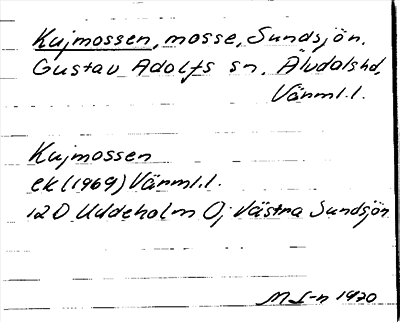 Kujmossen, mosse, Sundsjön.
Gustav Adolfs sn. Älvdals hd.
Värml. l.
Kujmossen
ek (1969) Värml. l.
12 D Uddeholm Oj Västra Sundsjön
1970